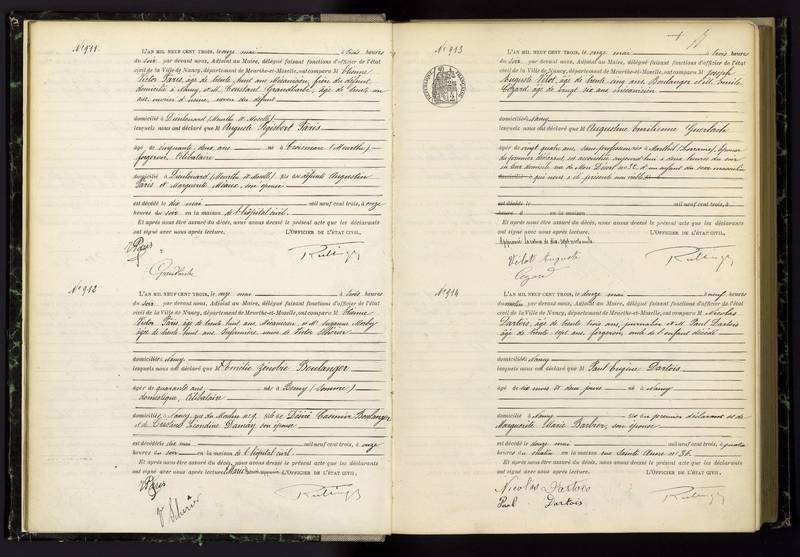 N° 911
L'AN MIL NEUF CENT TROIS, le onze mai à trois heures
du soir par devant nous, Adjoint au Maire, délégué faisant fonctions d'officier de l'état
civil de la Ville de Nancy, département de Meurthe-et-Moselle, ont comparu M Etienne
Victor Pâris, âgé de trente huit ans Mécanicien, frère du défunt,
domicilié à Nancy, et M. Constant Grandbarbe, âgé de trente un
ans, ami du défunt
domicilié à Dieulouard (Meurthe et Moselle)
lesquels nous ont déclaré que M Auguste Sigisbert Pâris
âgé de cinquante deux ans né à Croismare (Meurthe)
forgeron, célibataire
domicilié à Dieulouard (Meurthe et Moselle) fils de défunts Augustin
Pâris et Marguerite son épouse
est décédé le dix mai mil neuf cent trois, à onze
heures du soir en la maison de l'hôpital civil.
Et après nous être assuré du décès, nous avons dressé le présent acte que les déclarants
ont signé avec nous après lecture. L'OFFICIER DE L'ÉTAT CIVIL,
V Pâris
Grandbarbe
N° 912
L'AN MIL NEUF CENT TROIS, le onze mai à trois heures
du soir par devant nous, Adjoint au Maire, délégué faisant fonctions d'officier de l'état
civil de la Ville de Nancy, département de Meurthe-et-Moselle, ont comparu M Etienne
Victor Pâris, âgé de trente huit ans Mécanicien, et Me Suzanne
âgée de trente huit ans Infirmière, veuve de Victor
domiciliés à Nancy
lesquels nous ont déclaré que M Emélie Zénobie Boulanger
âgée de quarante ans, née à (Somme)
domestique, célibataire
domiciliée à Nancy, rue du Moulin n° 9 fille de Désiré Casimir Boulanger
et de Léandine Damay, son épouse
est décédée le dix mai mil neuf cent trois, à onze
heures du soir en la maison de l'hôpital civil.
Et après nous être assuré du décès, nous avons dressé le présent acte que les déclarants
ont signé avec nous après lecture. L'OFFICIER DE L'ÉTAT CIVIL,
V Pâris
N° 913
L'AN MIL NEUF CENT TROIS, le onze mai à trois heures
du soir par devant nous, Adjoint au Maire, délégué faisant fonctions d'officier de l'état
civil de la Ville de Nancy, département de Meurthe-et-Moselle, ont comparu M Joseph
Auguste Vélot, âgé de trente cinq ans, Boulanger et M. Emile
Cogard âgé de vingt six ans mécanicien
domiciliés à Nancy
lesquels nous ont déclaré que M Augustine Emilienne Guerlach
âgée de vingt quatre ans, sans profession née à (Lorraine), épouse
du premier déclarant, est accouchée aujourd'hui à deux heures du soir
en leur domicile rue de Mon Désert n° 32, d'un enfant du sexe masculin
qui nous a été présenté sans vie
est décédé le mil neuf cent trois, à
heures d en la maison
Et après nous être assuré du décès, nous avons dressé le présent acte que les déclarants
ont signé avec nous après lecture. L'OFFICIER DE L'ÉTAT CIVIL,
Vélot Auguste
Cogard
N° 914
L'AN MIL NEUF CENT TROIS, le douze mai à neuf heures
du matin par devant nous, Adjoint au Maire, délégué faisant fonctions d'officier de l'état
civil de la Ville de Nancy, département de Meurthe-et-Moselle, ont comparu M Nicolas
Dartois, âgé de trente trois ans, journalier et M. Paul Dartois
âgé de trente sept ans, forgeron, oncle de l'enfant décédé
domiciliés à Nancy
lesquels nous ont déclaré que M Paul Eugène Dartois
âgé de six mois et deux jours né à Nancy
domicilié à Nancy fils du premier déclarant et de
Marguerite Marie Barbier, son épouse
est décédé le douze mai mil neuf cent trois, à quatre
heures du matin en la maison rue Sainte Anne n° 36.
Et après nous être assuré du décès, nous avons dressé le présent acte que les déclarants
ont signé avec nous après lecture. L'OFFICIER DE L'ÉTAT CIVIL,
Nicolas Dartois
Paul Dartois